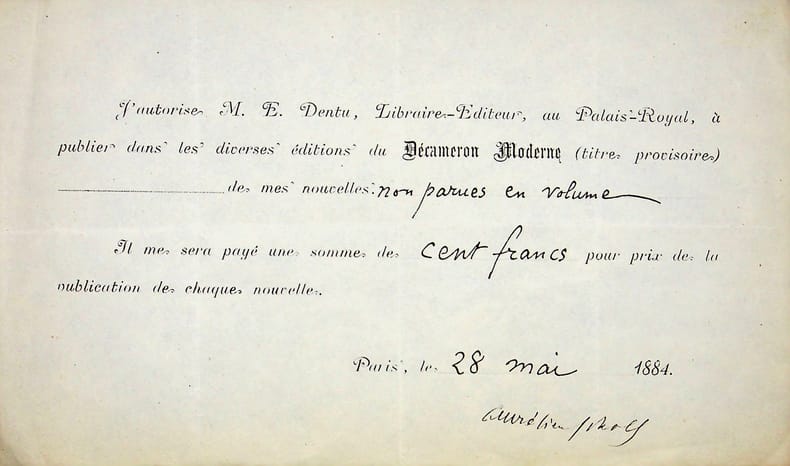 J'autorise M. E. Dentu, Libraire-Editeur, au Palais-Royal, à
publier dans les diverses éditions du Décameron Moderne (titre provisoire)
de mes nouvelles: non parues en volume
Il me sera payé une somme de cent francs pour prix de la
publication de chaque nouvelle.
Paris, le 28 mai 1884.
Aurélien Scholl